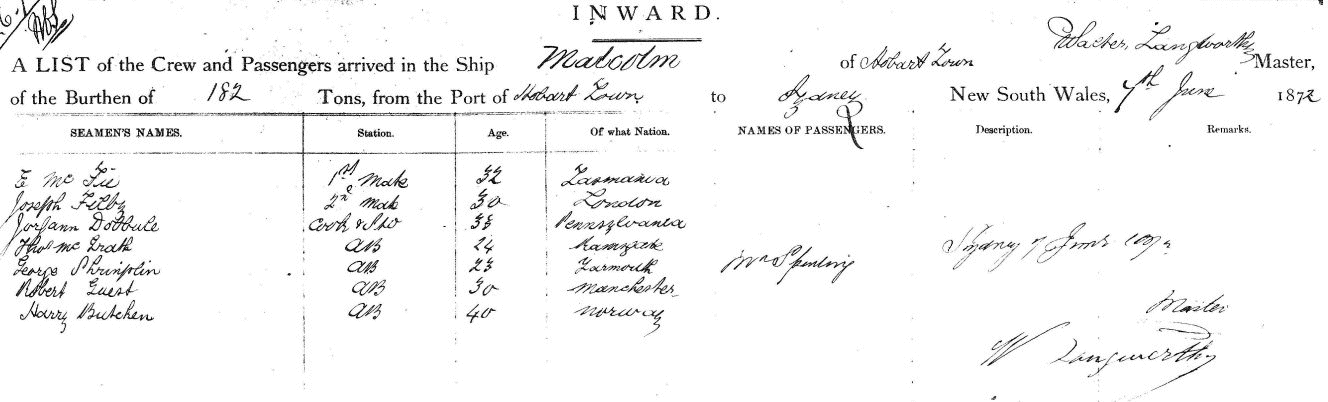 INWARD.
Walter Langworthy
A LIST of the Crew and Passengers arrived in the Ship Malcolm of Hobart Town Master,
of the Burthen of 182 Tons, from the Port of Hobart Town to Sydney New South Wales, 7th June 1872
SEAMEN'S NAMES. Station. Age. Of what Nation. NAMES OF PASSENGERS. Description. Remarks.
E Mc Fie 1st Mate 32 Tasmania
Joseph Filby 2nd Mate 30 London
Dobbule Cook & Std Pennsylvania
Thos Mc Grath AB 24 Ramsgate
George Shrimplin AB 23 Yarmouth Mr Spurling Sydney 7 June 1872
Robert Guest AB 30 Manchester
Harry Butchen AB 40 Norway Master
W Langworthy